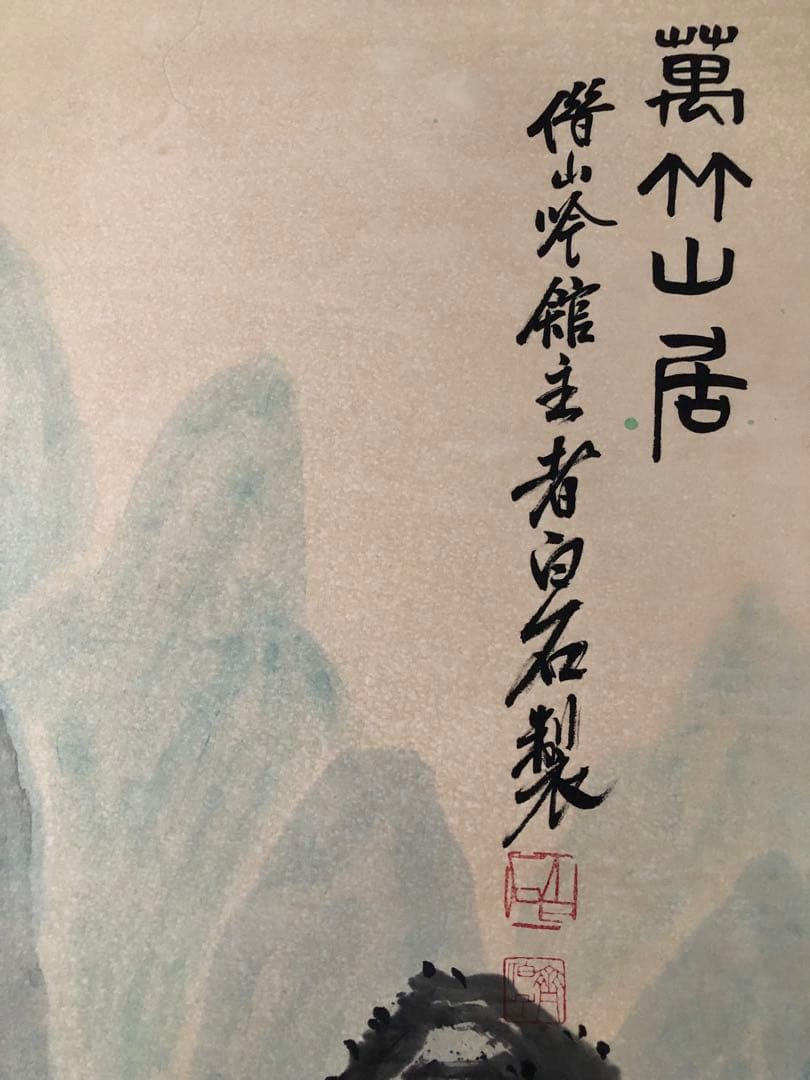 萬竹山居
借山吟館主者白石製